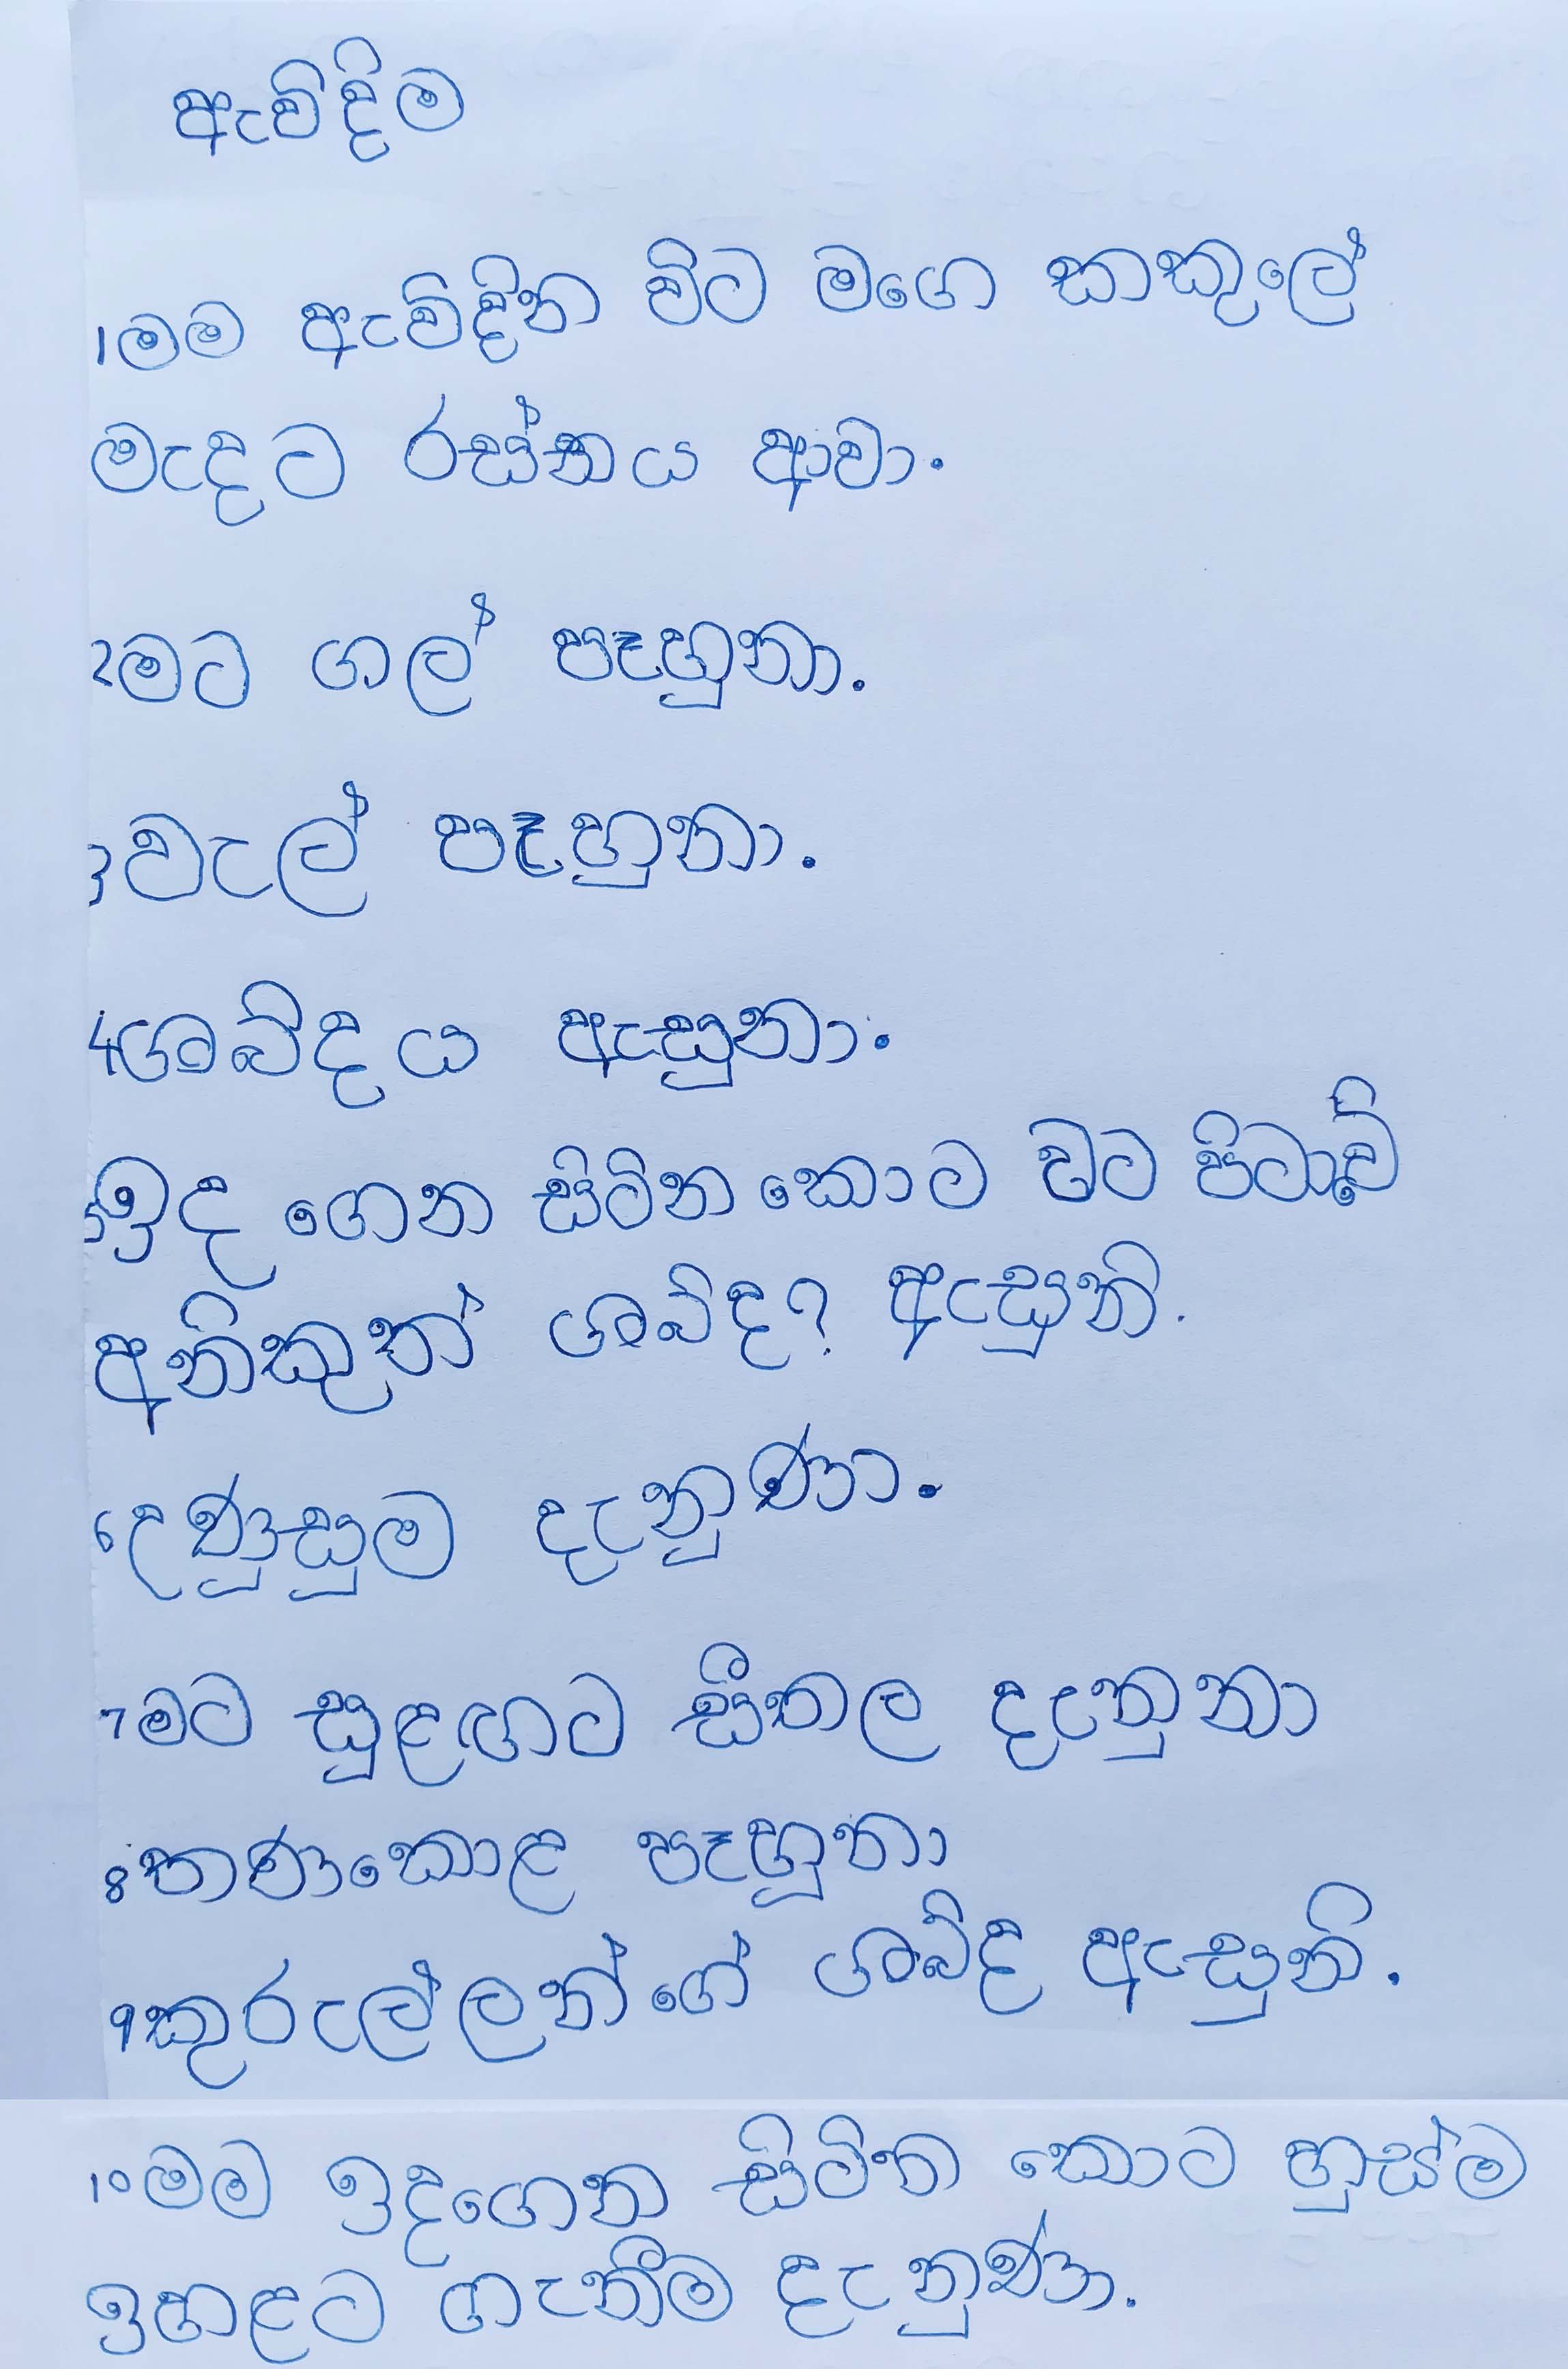 ඇවිදිම
1මම ඇවිදින විට මගෙ කකුලේ
මැදට රස්නය ආවා.
2මට ගල් පෑහුනා.
3වැල් පෑහුනා.
4ශබ්දය ඇසුනා.
5ඉද ගෙන සිටින කොට වට පිටාවේ
අනිකුත් ශබ්ද? ඇසුනි.
6උණුසුම දැනුණා.
7මට සුළඟට සීතල දැනුනා
8තණකොළ පෑහුනා
9කුරුල්ලන්ගේ ශබ්ද ඇසුනි.
10මම ඉදගෙන සිටින කොට හුස්ම
ඉහළට ගැනීම දැනුණා.